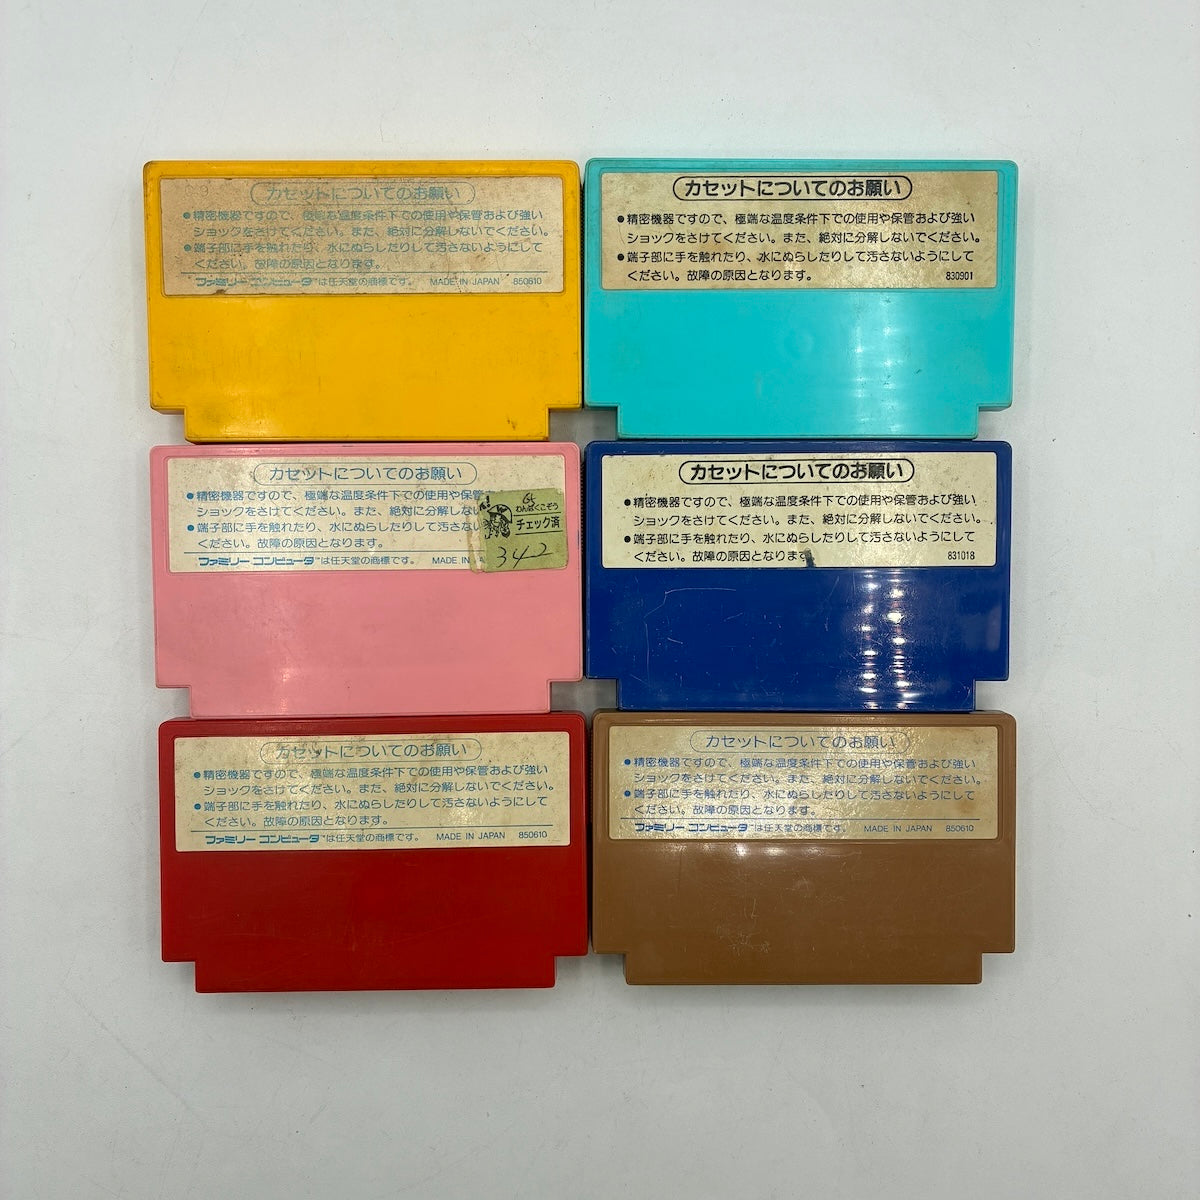 カセットについてのお願い
●精密機器ですので、極端な温度条件下での使用や保管および強い
ショックをさけてください。また、絶対に分解しないでください。
●端子部に手を触れたり、水にぬらしたりして汚さないようにして
ください。故障の原因となります。
ファミリーコンピュータ™は任天堂の商標です。 MADE IN JAPAN 850610
カセットについてのお願い
●精密機器ですので、極端な温度条件下での使用や保管および強い
ショックをさけてください。また、絶対に分解しないでください。
●端子部に手を触れたり、水にぬらしたりして汚さないようにして
ください。故障の原因となります。 830901
カセットについてのお願い
●精密機器ですので、極端な温度条件下での使用や保管
ショックをさけてください。また、絶対に分解しな
●端子部に手を触れたり、水にぬらしたりして汚さな
ください。故障の原因となります。
ファミリーコンピュータ™は任天堂の商標です。 MADE IN
わんぱくこぞう
チェック済
342
カセットについてのお願い
●精密機器ですので、極端な温度条件下での使用や保管および強い
ショックをさけてください。また、絶対に分解しないでください。
●端子部に手を触れたり、水にぬらしたりして汚さないようにして
ください。故障の原因となります 831018
カセットについてのお願い
●精密機器ですので、極端な温度条件下での使用や保管および強い
ショックをさけてください。また、絶対に分解しないでください。
●端子部に手を触れたり、水にぬらしたりして汚さないようにして
ください。故障の原因となります。
ファミリーコンピュータ™は任天堂の商標です。 MADE IN JAPAN 850610
カセットについてのお願い
●精密機器ですので、極端な温度条件下での使用や保管および強い
ショックをさけてください。また、絶対に分解しないでください。
●端子部に手を触れたり、水にぬらしたりして汚さないようにして
ください。故障の原因となります。
ファミリーコンピュータ™は任天堂の商標です。 MADE IN JAPAN 850610